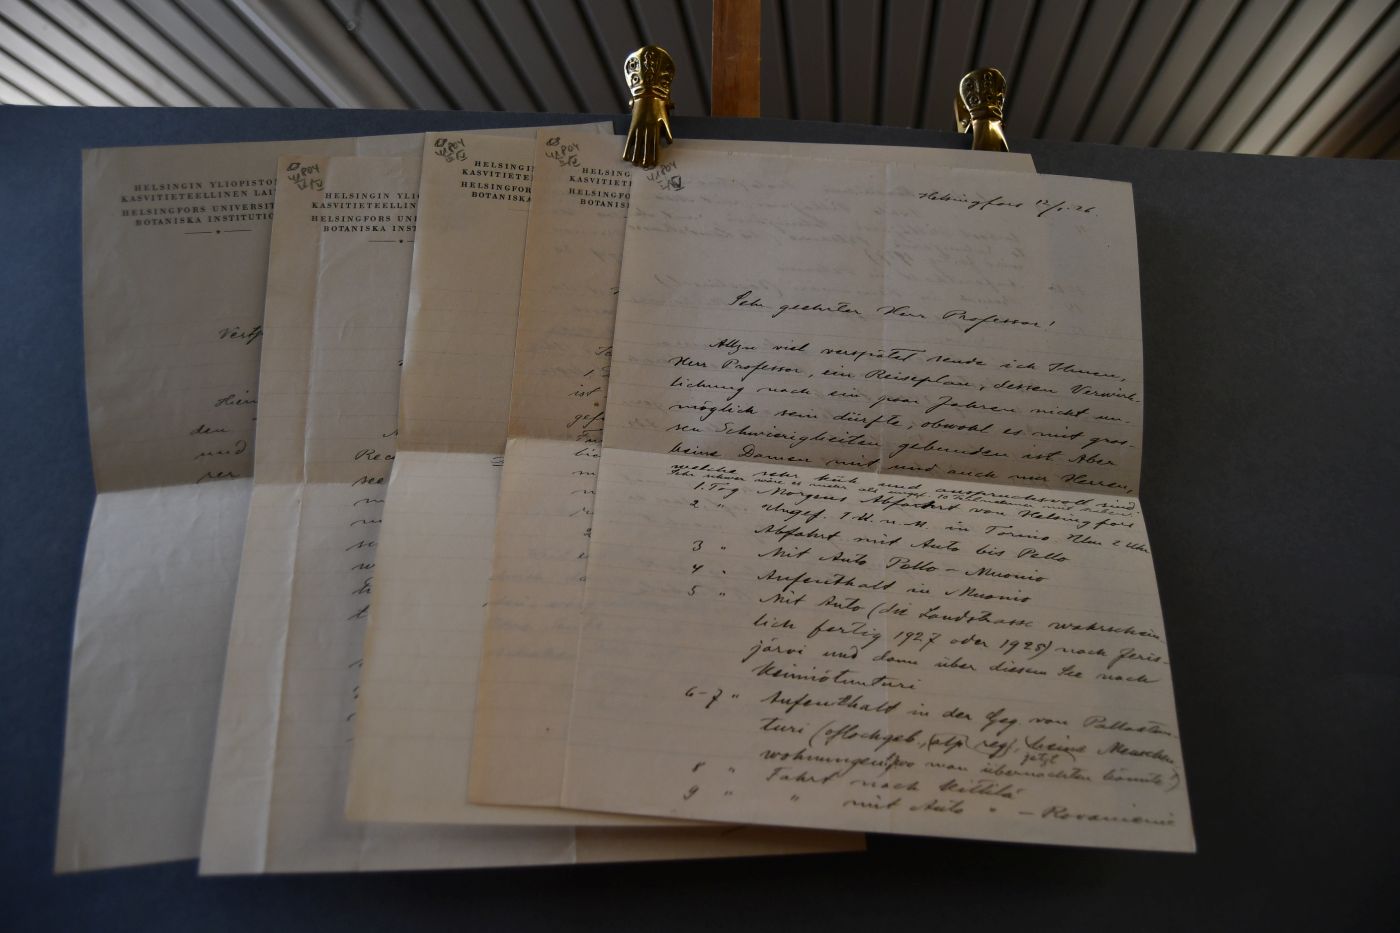 HELSINGIN YLIOPISTON
KASVITIETEELLINEN LAI
HELSINGFORS UNIVERSIT
BOTANISKA INSTITUTIO
Hier
den
und
HELSINGIN YLI
KASVITIETEELLINEN
HELSINGFORS UNI
BOTANISKA INST
HELSINGIN
KASVITIETE
HELSINGFOR
BOTANISKA
HELSING
KASVITI
HELSINGFO
BOTANIS
ist
Helsingfors 12/1.26.
Sehr geehrter Herr Professor!
Allzu viel verspätet sende ich Ihnen,
Herr Professor, ein Reiseplan, dessen Verwirk-
lichung nach ein paar Jahren nicht un-
möglich sein dürfte, obwohl es mit gros-
sen Schwierigkeiten gebunden ist. Aber
keine Damen mit und auch nur Herren,
welche sehr und anspruchsvoll sind
1. Tag Morgens Abfahrt von Helsingfors
2. " Ungef. 1 U. n. M. in Tornio. Um 2 Uhr
Abfahrt mit Auto bis Pello
3 " Mit Auto Pello - Muonio
4 " Aufenthalt in Muonio
5 " Mit Auto (die Landstrasse wahrschein-
lich fertig 1927 oder 1928) nach Jeris-
järvi und dann über diesen See nach
Keimiötunturi
6-7 " Aufenthalt in der Geg. von Pallastun-
turi (Hochgeb., alp. reg., keine Menschen
wohnungen, wo man jetzt übernachten könnte!)
8 " Fahrt nach Kittilä
9 " " mit Auto " - Rovaniemi